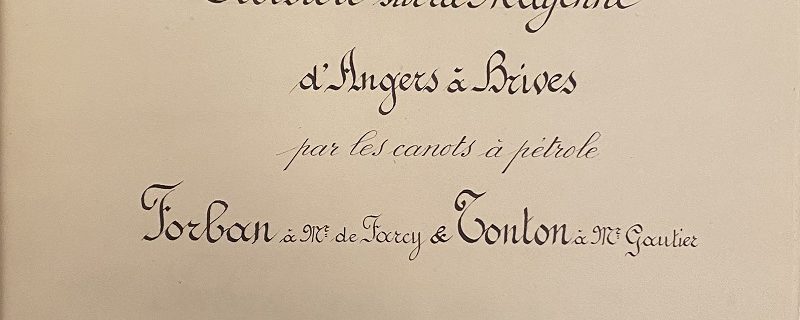 Croisière sur la Mayenne
d'Angers à Brives
par les canots à pétrole
Forban à Mr. de Farcy & Tonton à Mr. Gautier